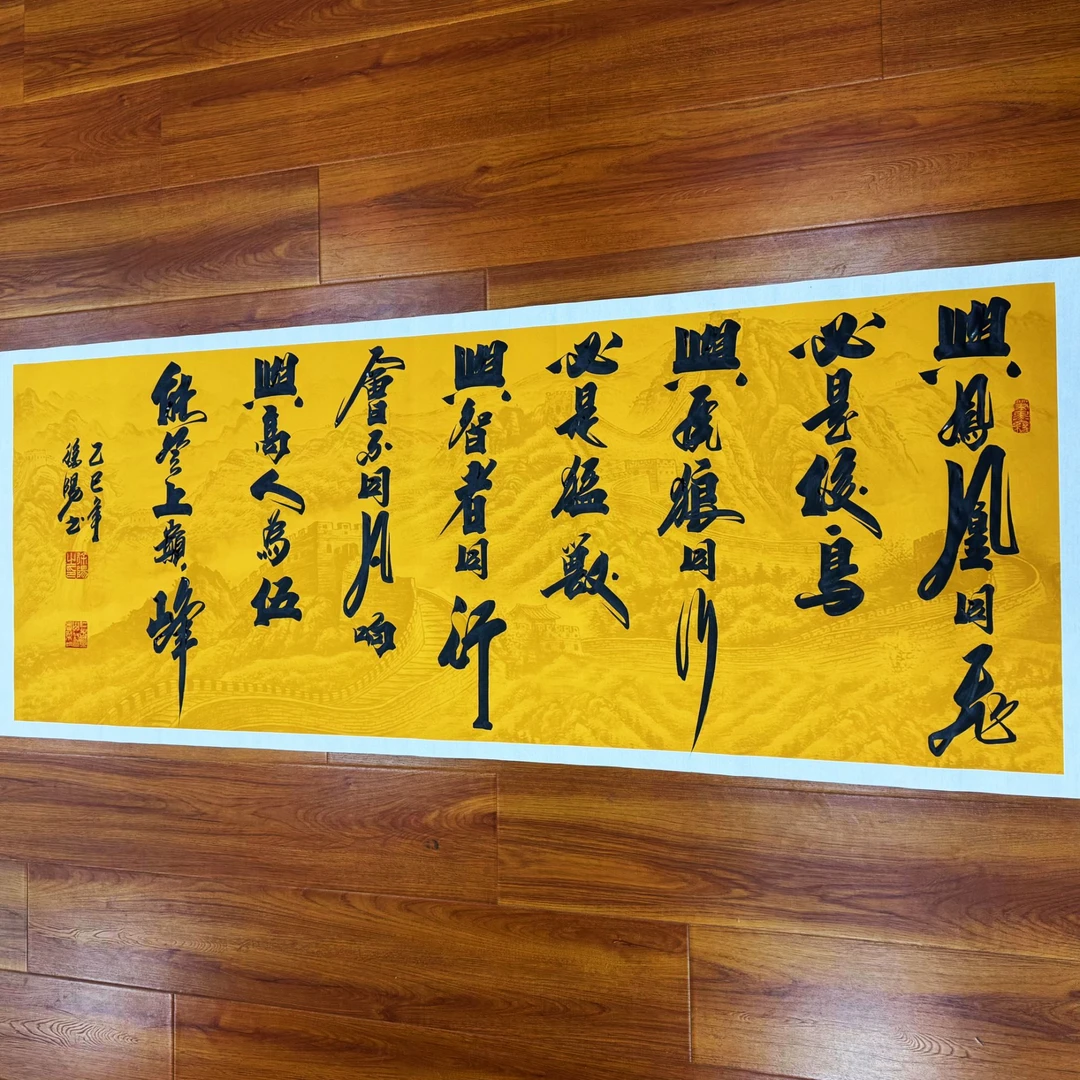 與鳳凰同飛
必是俊鳥
與虎狼同行
必是猛獸
與智者同行
會不同凡响
與高人為伍
能登上巔峰
乙巳年
书